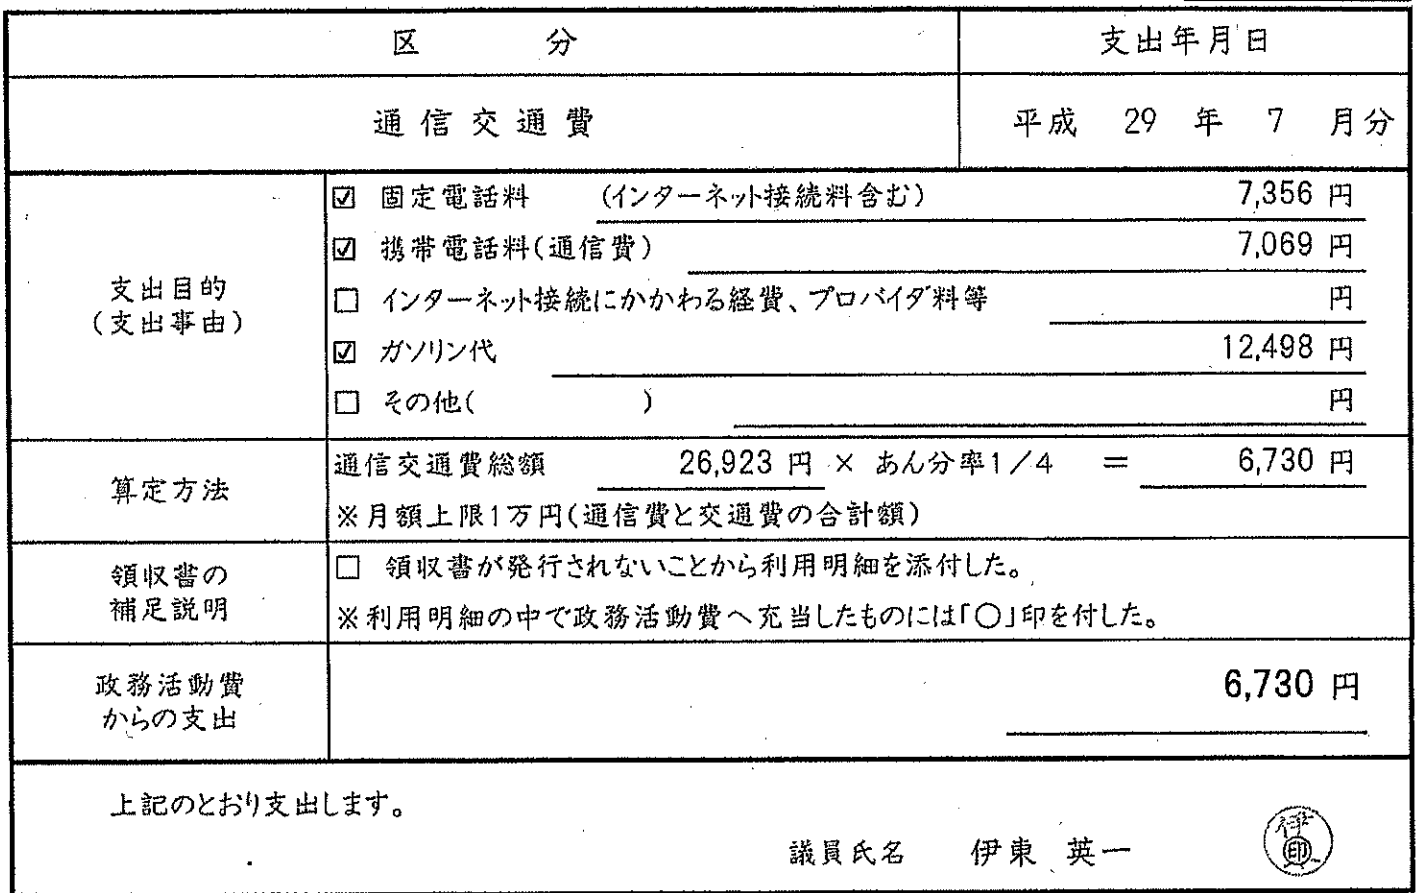 区　　　分　　　支出年月日
通信交通費　　　平成　29　年　7　月分
☑ 固定電話料　　(インターネット接続料含む)　　7,356 円
☑ 携帯電話料(通信費)　　7,069 円
支出目的
(支出事由)
□ インターネット接続にかかわる経費、プロバイダ料等　　円
☑ ガソリン代　　12,498 円
□ その他(　　　　　)　　円
算定方法
通信交通費総額　　26,923 円 × あん分率1/4　=　6,730 円
※月額上限1万円(通信費と交通費の合計額)
領収書の
補足説明
□ 領収書が発行されないことから利用明細を添付した。
※利用明細の中で政務活動費へ充当したものには「○」印を付した。
政務活動費
からの支出
6,730 円
上記のとおり支出します。
議員氏名　　伊東 英一　　印